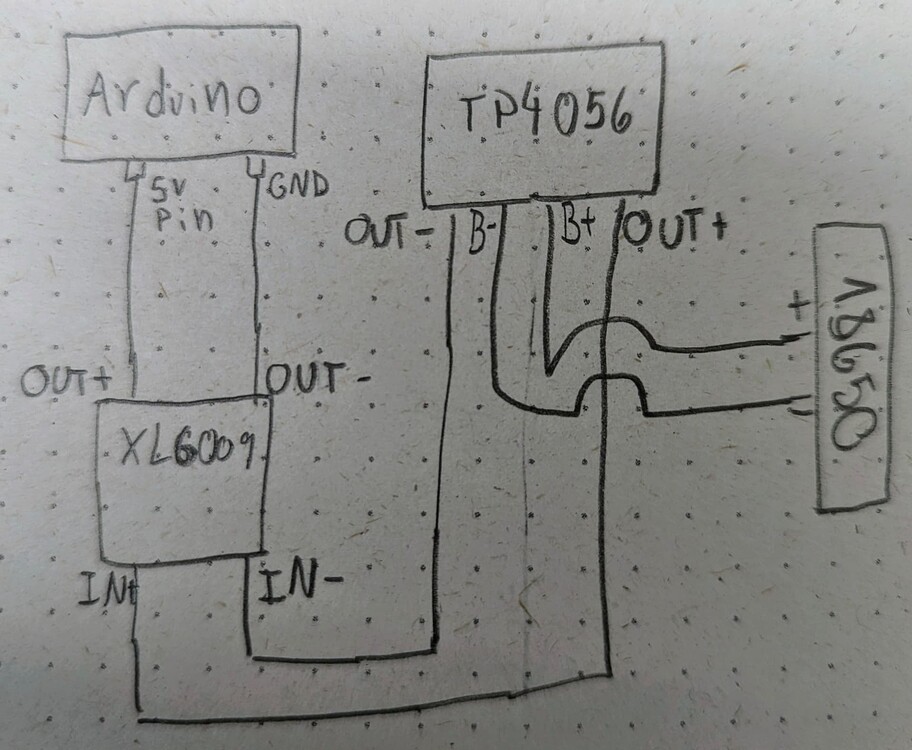 Arduino
TP4056
5V
Pin
GND
OUT-
B-
B+
OUT+
+
-
18650
OUT+
OUT-
XL6009
IN+
IN-